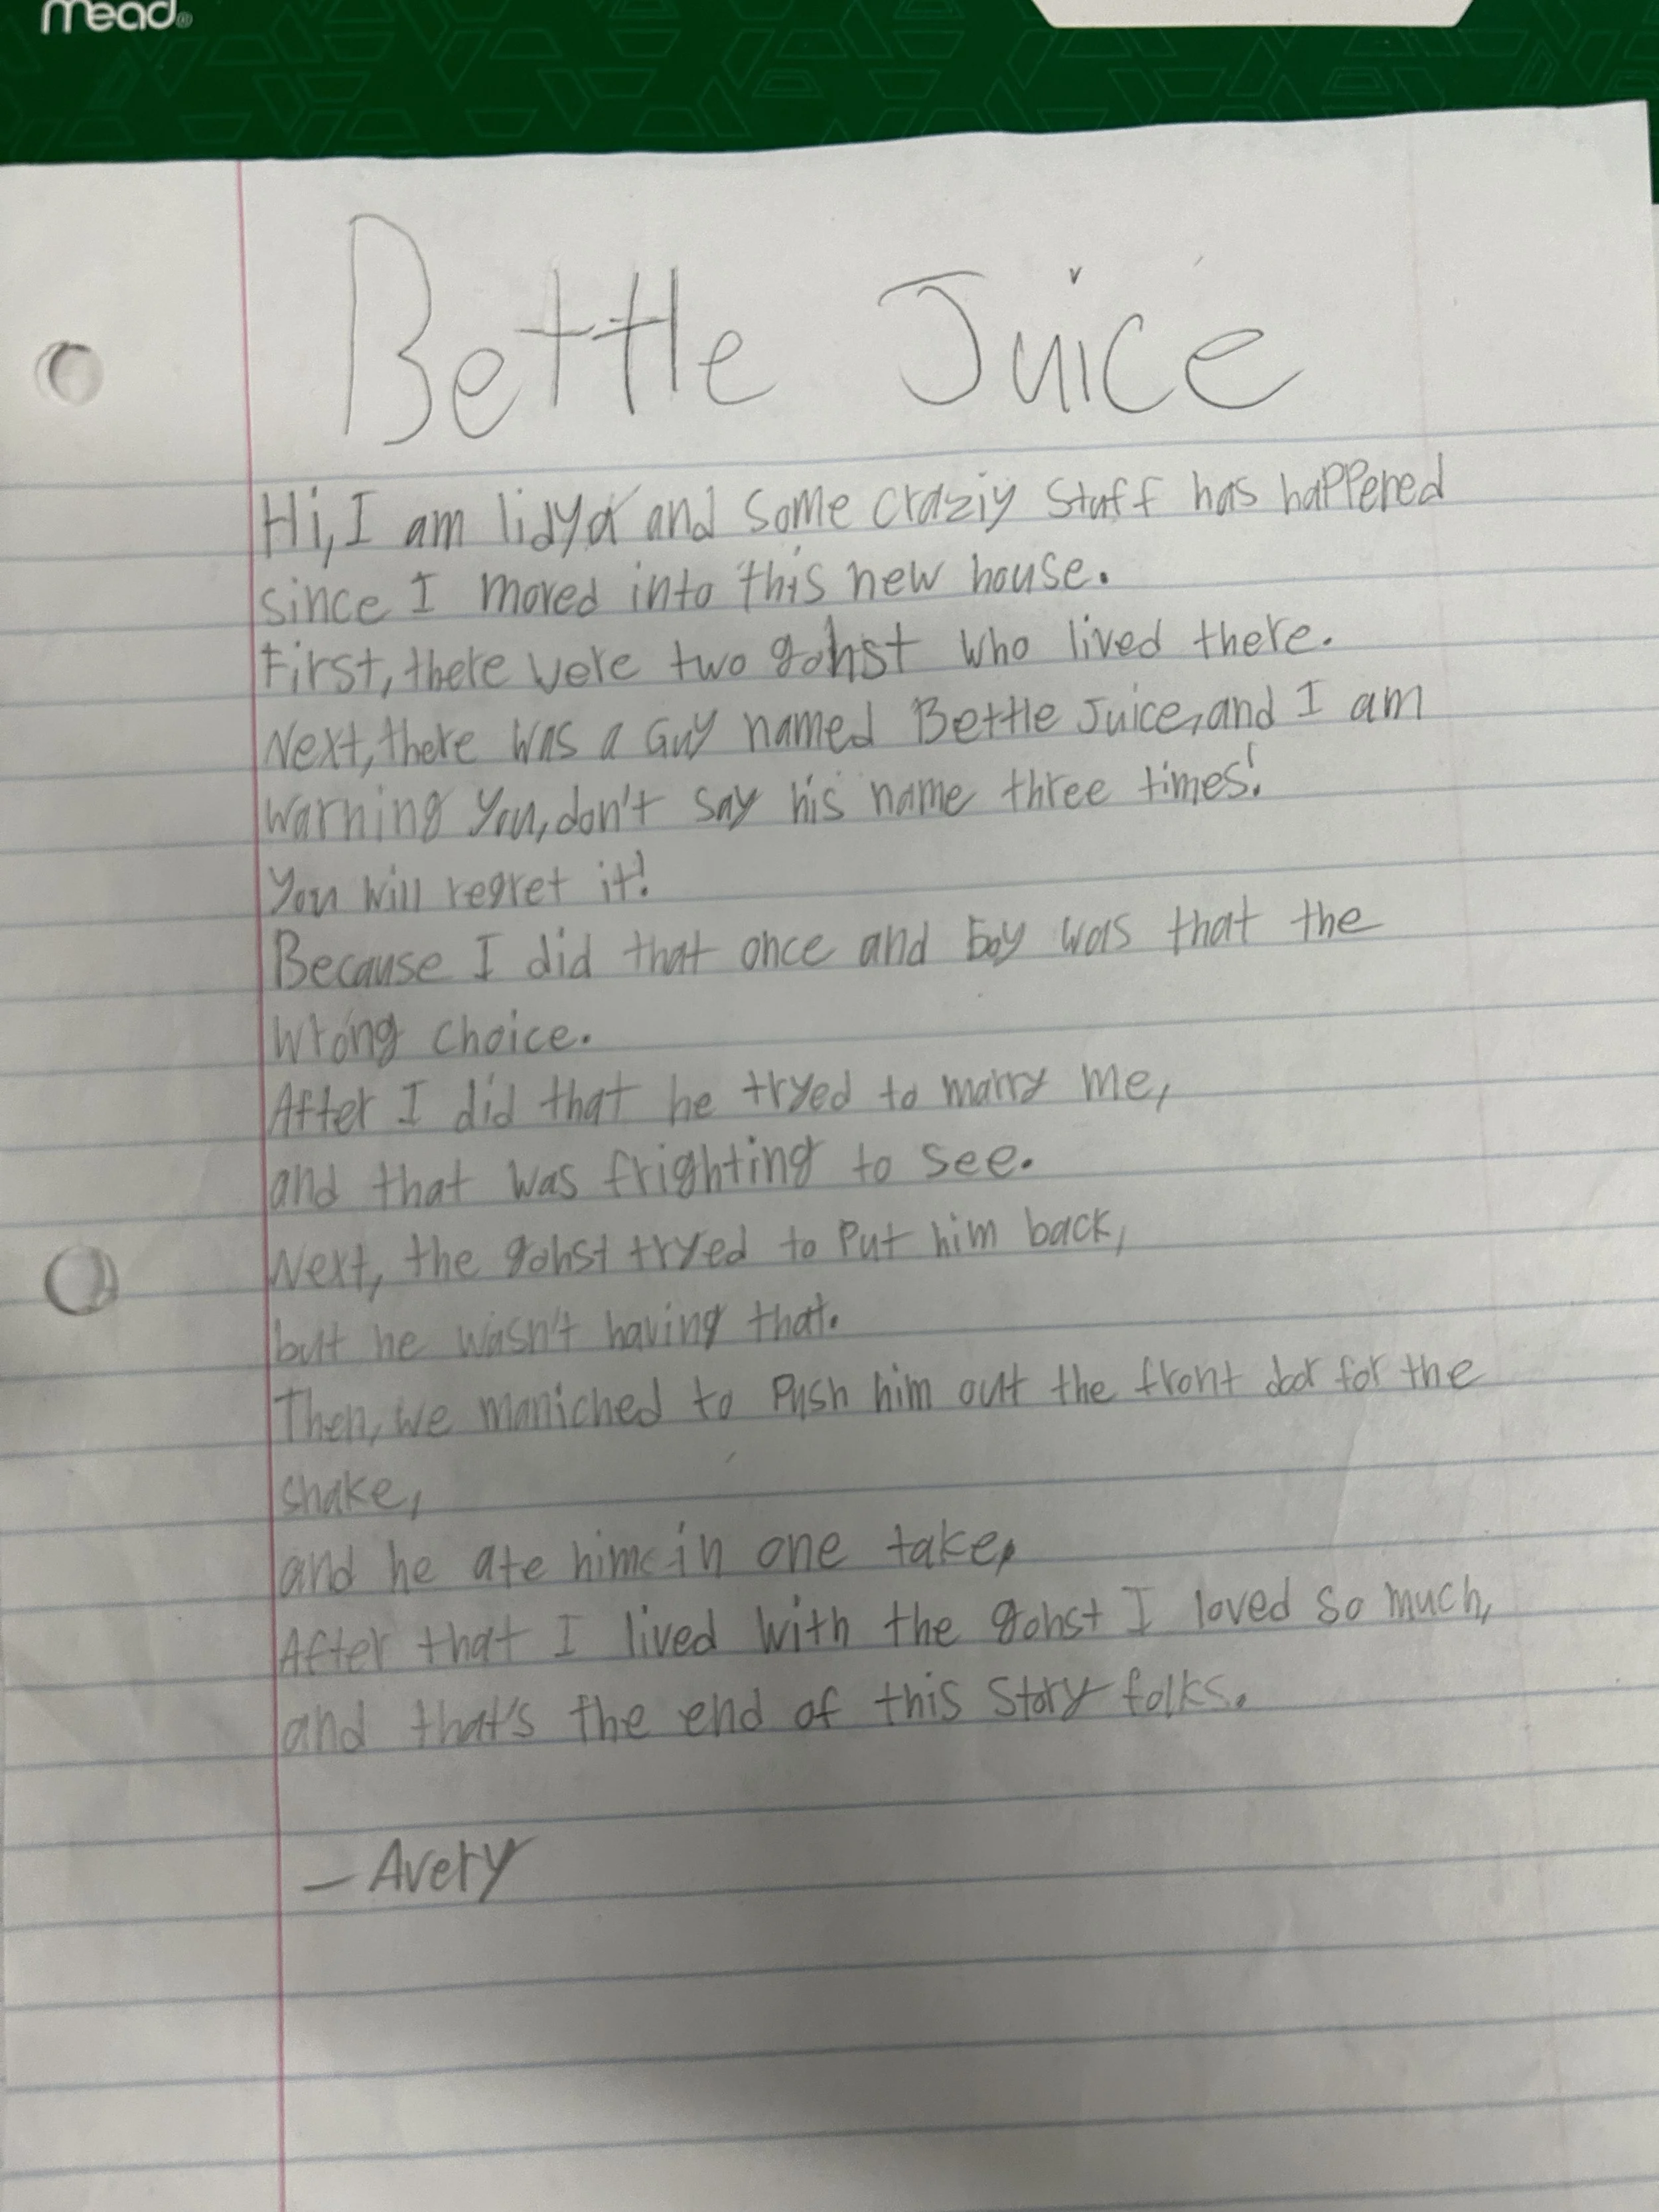 mead
Bettle Juice
Hi, I am lidya and some craziy stuff has happened
since I moved into this new house.
First, there were two gohst who lived there.
Next, there was a Guy named Bettle Juice, and I am
warning you, don't say his name three times!
You will regret it!
Because I did that once and boy was that the
wrong choice.
After I did that he tryed to marry me,
and that was frighting to see.
Next, the gohst tryed to put him back,
but he wasn't having that.
Then, we maniched to push him out the front door for the
snake,
and he ate him in one take,
After that I lived with the gohst I loved so much,
and that's the end of this story folks.
– Avery